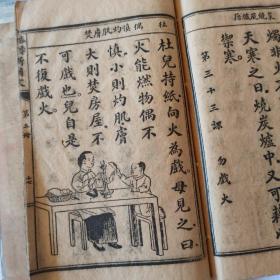 天寒之日燒炭
禦寒
第三十三課 勿戲火
焚膚肌灼慎偶 杜
杜兒持紙向火為戲母見之曰
火能燃物偶不
慎小則灼肌膚
大則焚房屋不
可戲也兒自是
不復戲火